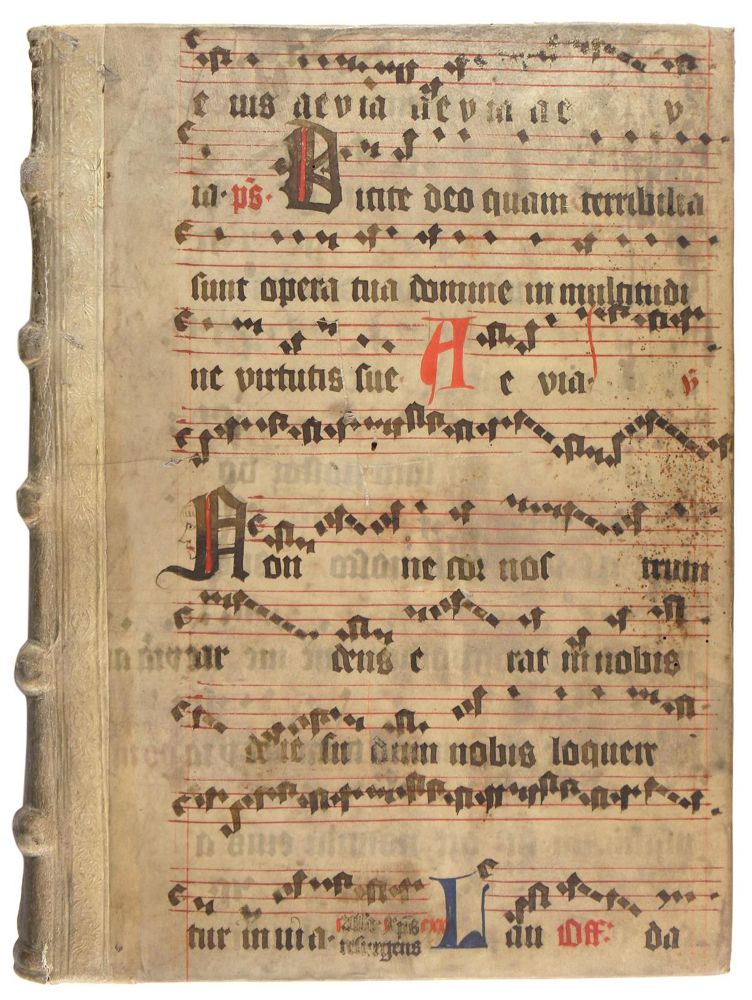 e uis aevia aevia ae v
ia · ps · Dicite deo quam terribilia
sunt opera tua domine in multitudi
ne virtutis sue · A e via · v̄
Non ne cor nos trum
ar dens e rat in nobis
de ie su dum nobis loquere
tur in uia · resurgens Lau Off: da